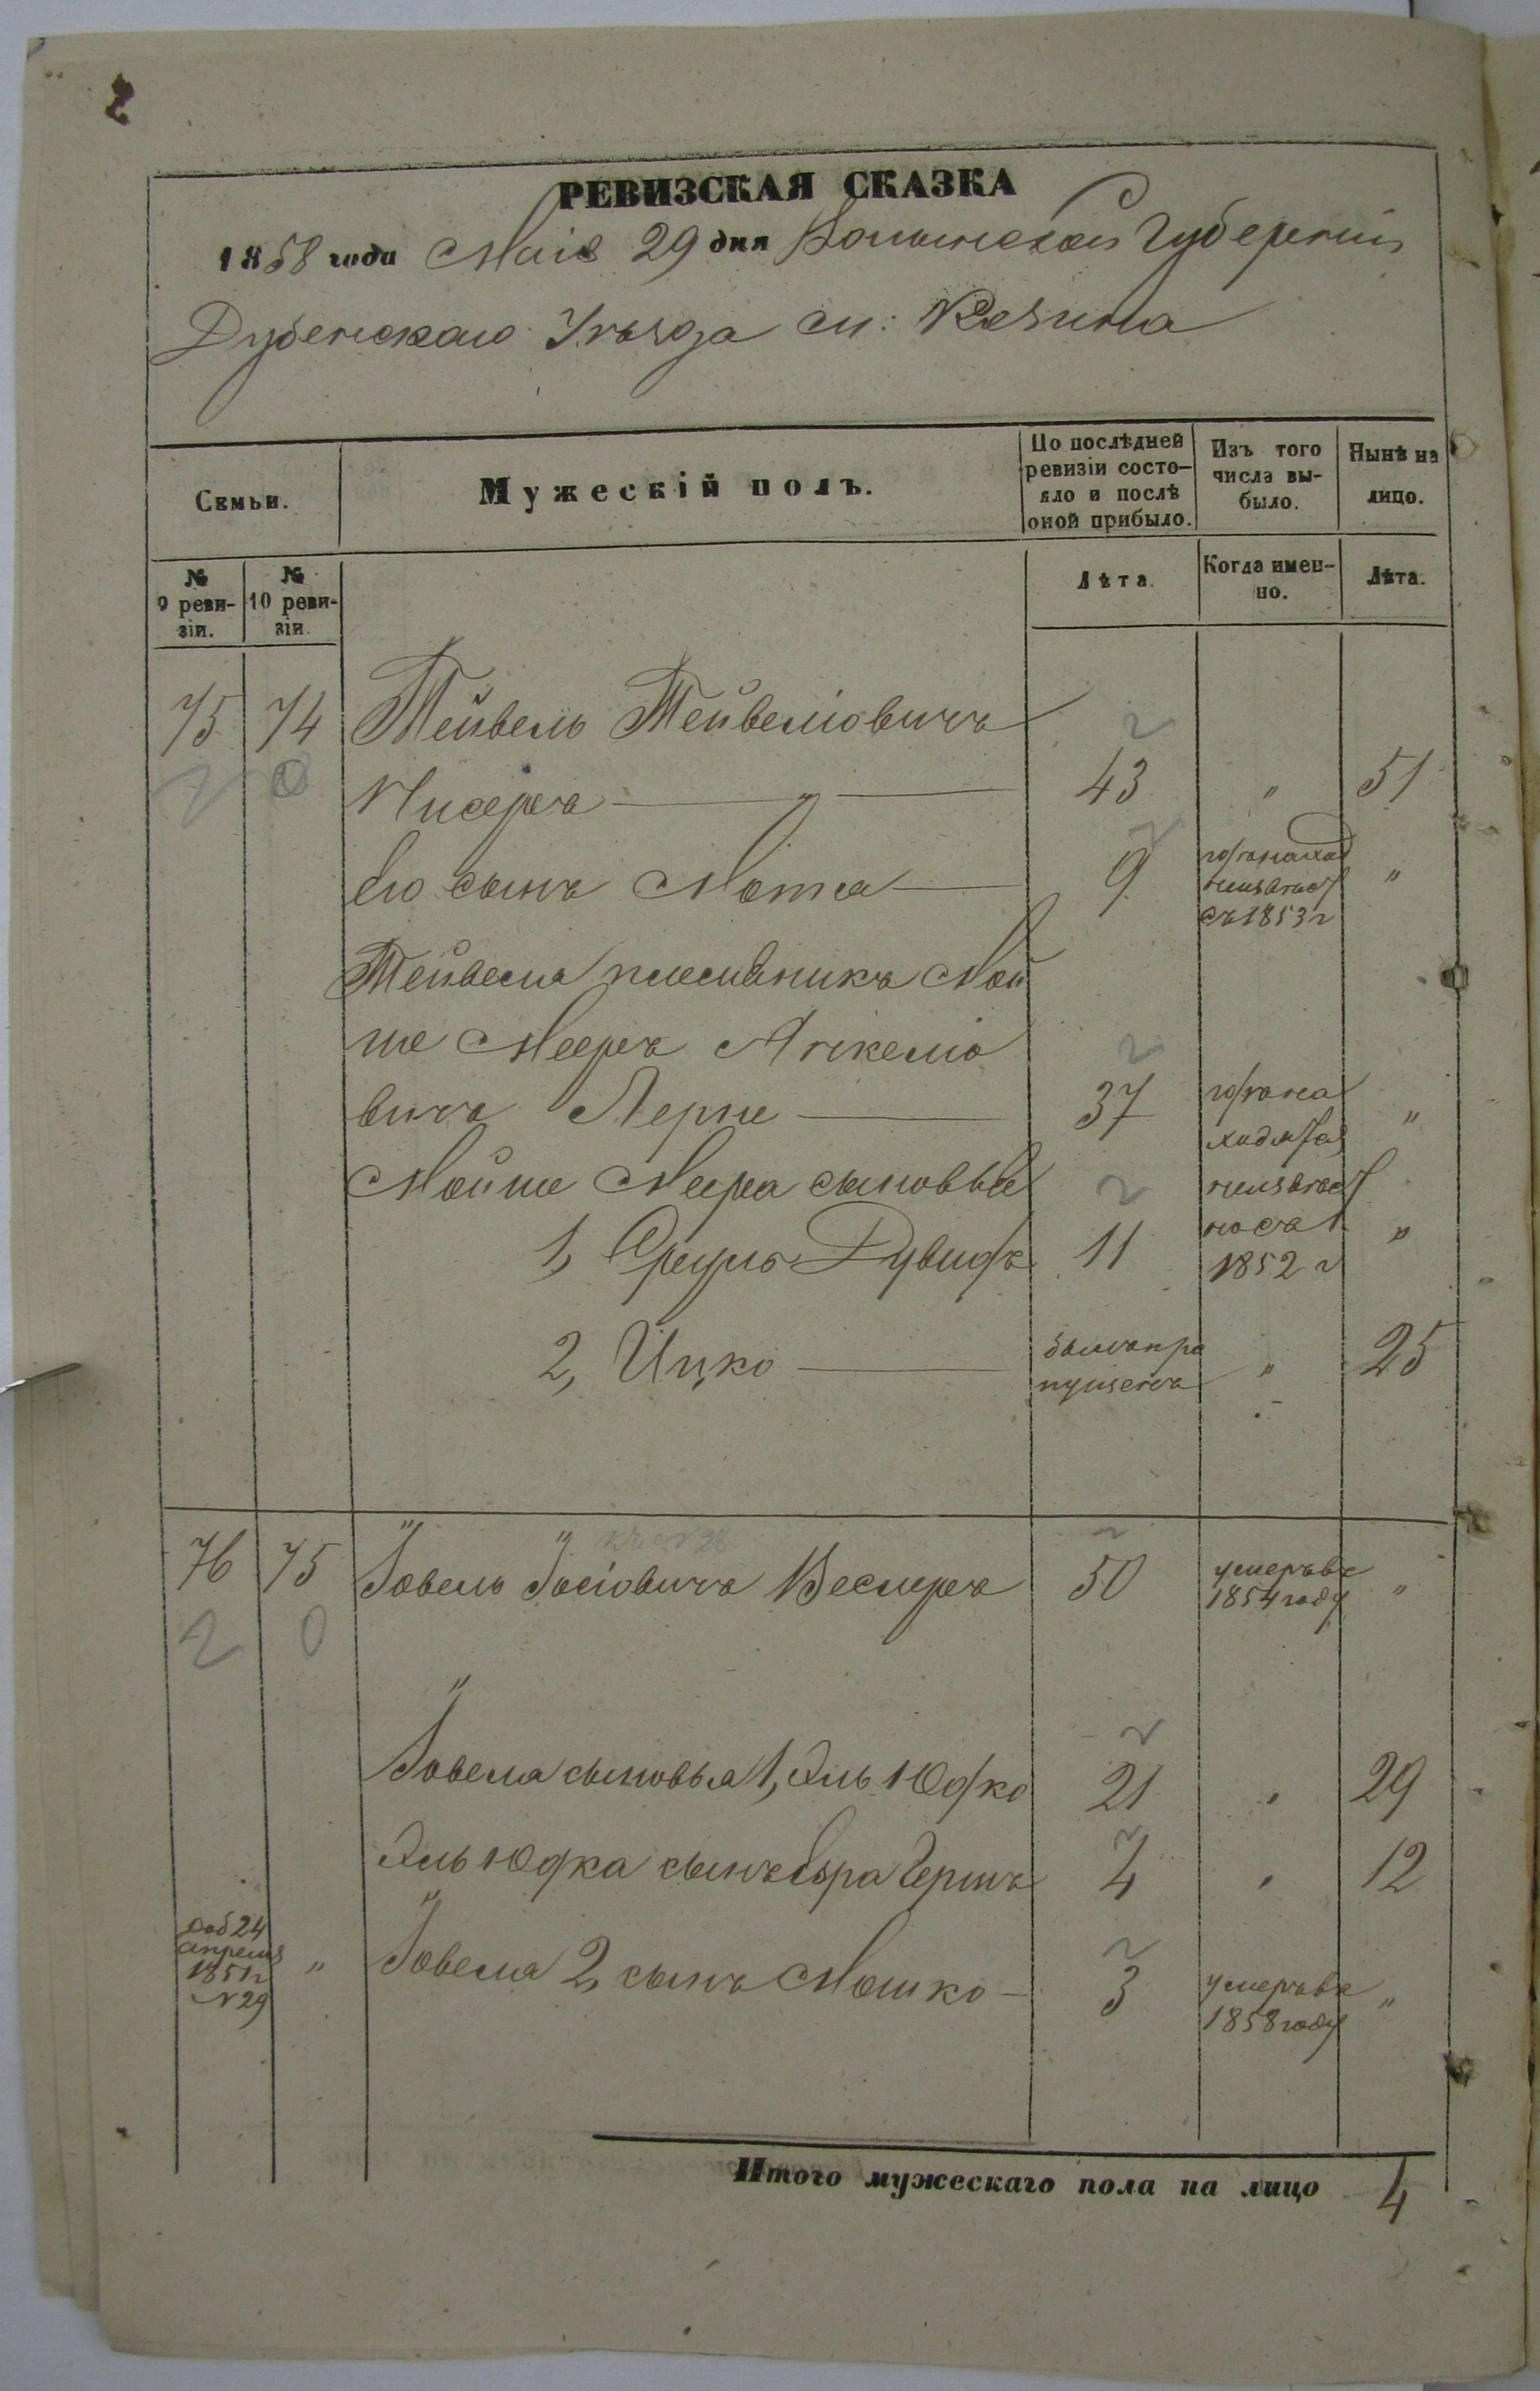 РЕВИЗСКАЯ СКАЗКА
1858 года Маія 29 дня Волынской Губерніи
Дубенскаго Уѣзда м: Козина
Семьи.
Мужескій полъ.
По послѣдней ревизіи состо-
яло и послѣ
оной прибыло.
Изъ того
числа вы-
было.
Нынѣ на
лицо.
№
9 реви-
зіи.
№
10 реви-
зіи.
Лѣта.
Когда имен-
но.
Лѣта.
75 74 Тейвель Тейвеліовичъ
43 " 51
Его сынъ Мотя 9 "
съ 1853 г
Тейвеля племянникъ Мой
ше Мееръ
вичъ Лерне 37 "
Мойше Меера сыновья
1, Сруль Дувидъ 11 "
1852 г
2, Ицко былъ про
пущенъ " 25
76 75 Іовель Іосіовичъ Веслеръ 50 умеръ въ
1854 году "
Іовеля сыновья 1, Эль Юдко 21 " 29
Эль Юдка сынъ Сра Гершъ 4 " 12
24
апреля
1851 г
№ 29
" Іовеля 2, сынъ Мошко 3 умеръ въ
1858 году "
Итого мужескаго пола на лицо 4